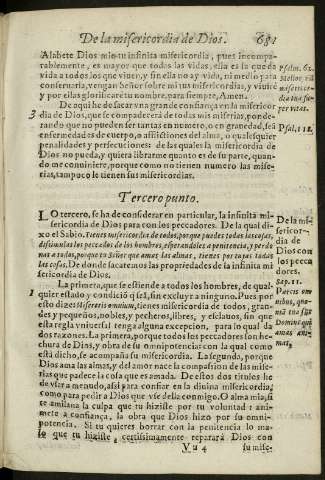 De la misericordia de Dios. 681
Alabete Dios mio tu infinita misericordia, pues incomparablemente,
es mayor que todas las vidas, ella es la que da
vida a todos los que viuen, y sin ella no ay vida, ni medio para
conseruarla, vengan Señor sobre mi tus misericordias, y viuirè
y por ellas glorificarè tu nombre, para siempre, Amen.
De aqui he de sacar vna grande confiança en la misericor
dia de Dios, que se compadecerà de todas mis miserias, ponderando
que no pueden ser tantas en numero, o en grauedad, sea
enfermedades de cuerpo, o afflictiones del alma, o qualesquier
penalidades y persecuciones: de las quales la misericordia de
Dios no pueda, y quiera librarme quanto es de su parte, quando
me conuiniere, porque como no tienen numero las miserias,
tampoco le tienen sus misericordias.
3
Psalm. 62.
Psal. 118.
Tercero punto.
LO tercero, se ha de considerar en particular, la infinita misericordia
de Dios para con los peccadores. De la qual dixo
el Sabio. Tienes misericordia de todos, porque puedes todas las cosas,
disimulas los peccados de los hombres, esperandoles a penitencia, y perdonas
a todos, porque tu Señor que amas las almas, tienes por tuyas todas
las cosas. De donde sacaremos las propriedades de la infinita mi
sericordia de Dios.
De la misericordia
de Dios
con los peccadores.
Sap. 11.
1
La primera, que se estiende a todos los hombres, de qualquier
estado y condiciõ q̃ seã, sin excluyr a ninguno. Pues por
esto dize: Misereris omnium, tienes misericordia de todos, grandes
y pequeños, nobles, y pecheros, libres, y esclauos, sin que
esta regla vniuersal tenga alguna excepcion, para lo qual da
dos razones. La primera, porque todos los peccadores son hechura
de Dios, y obra de su omnipotencia con la qual como
està dicho, se acompaña su misericordia. La segunda, porque
Dios ama las almas, y del amor nace la compassion de las miserias
que padece la cosa que es amada. De estos dos titulos he
de vsar a menudo, assi para confiar en la diuina misericordia,
como para pedir a Dios que vse della conmigo. O alma mia, si
te amilana la culpa que tu hiziste por tu voluntad: animete
a confiança, la obra que Dios hizo por su omnipotencia.
Si tu quieres borrar con la penitencia lo malo
que tu hiziste, certissimamente reparará Dios con
Vu 4 su mise-